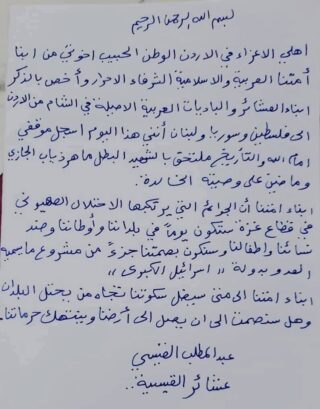 بسم الله الرحمن الرحيم
أهلي الاعزاء في الاردن الوطن الحبيب اخوتي من ابنا
أمتنا العربية والاسلامية الشرفاء الاحرار وأخص بالذكر
ابناء العشائر والباديات العربية الاصيلة في الشام من الاردن
الى فلسطين وسوريا ولبنان أنني هذا اليوم اسجل موقفي
امام الله والتأريخ ملتحق بالشهيد البطل ماهر ذياب الجازي
وماضين على وصيته الخالدة.
ابناء امتنا أن الجرائم التي يرتكبها الاحتلال الصهيوني
في قطاع غزة ستكون يوماً في بلداننا وأوطاننا وضد
نسائنا واطفالنا وستكون بصمتنا جزءً من مشروع ما يسميه
العدو بدولة " اسرائيل الكبرى "
ابناء امتنا الى متى سيضل سكوتنا تجاه من يحتل البلدان
وهل سنصمت الى ان يصل الى أرضنا وينتهك حرماتنا.
عبد المطلب القيسي
عشائر القيسية..